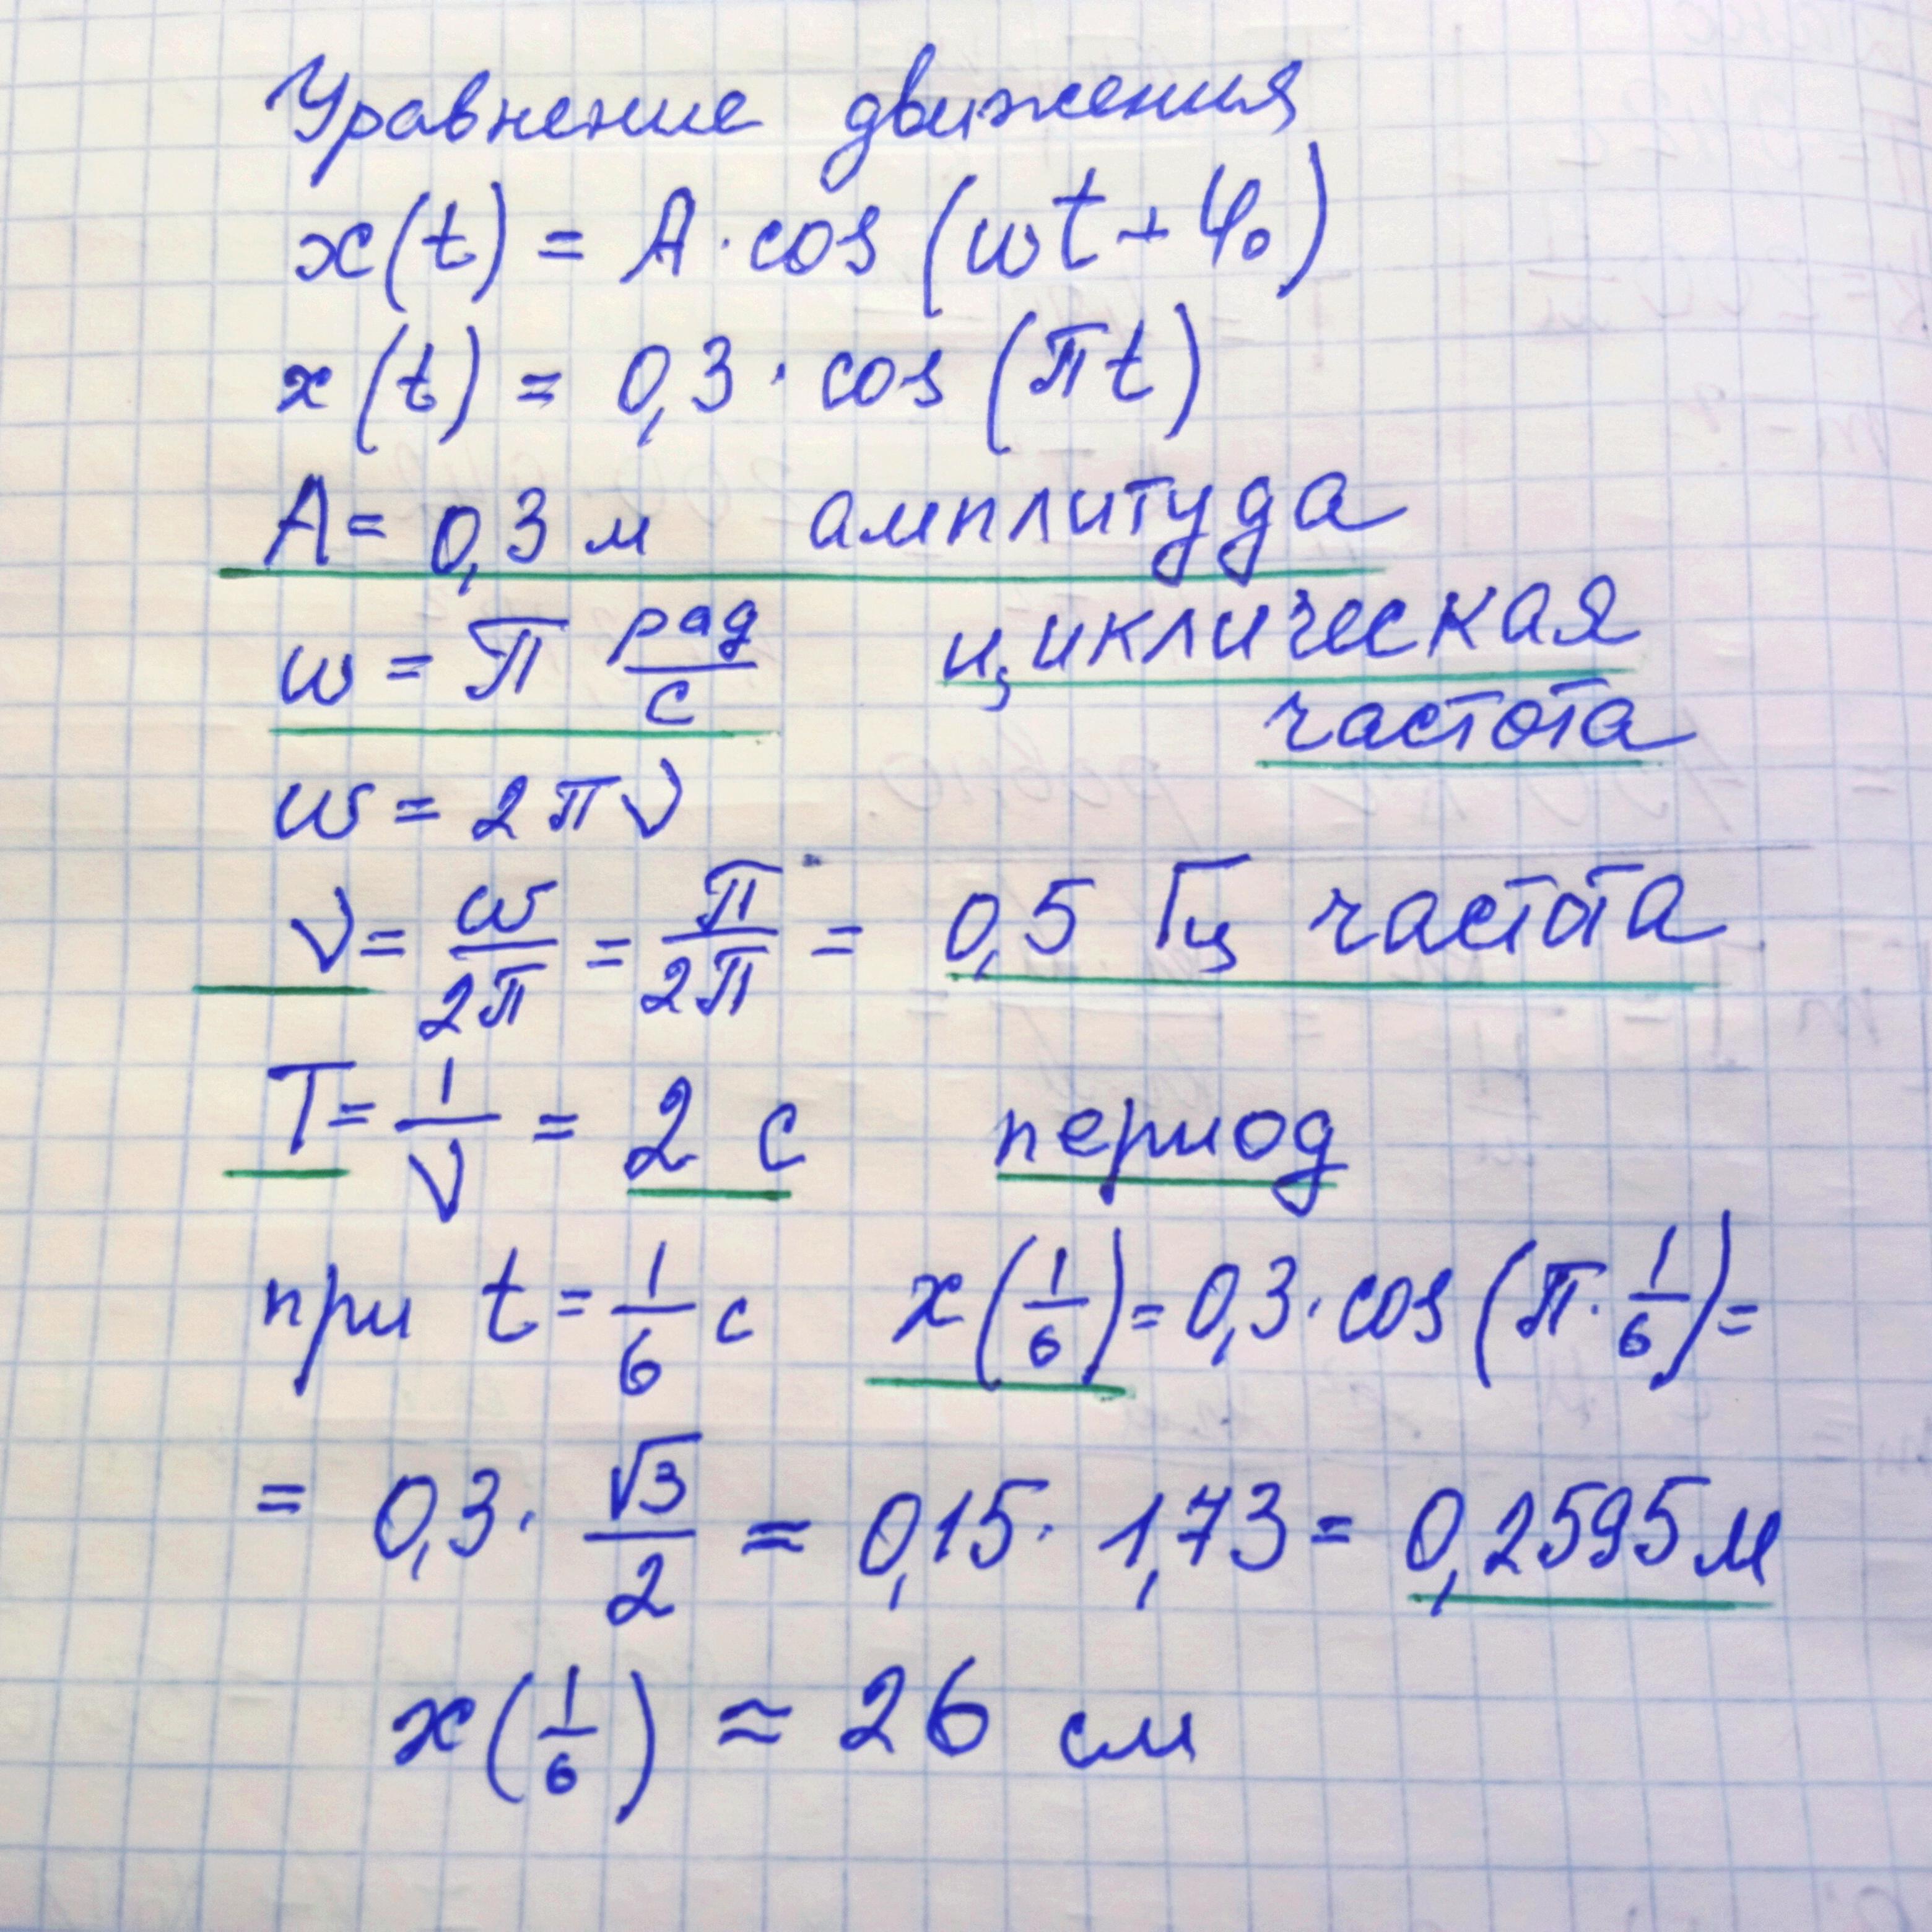 Уравнение движения
x(t) = A · cos (ωt + φ₀)
x(t) = 0,3 · cos (πt)
A = 0,3 м амплитуда
ω = π рад/с циклическая
частота
ω = 2πν
ν = ω/2π = π/2π = 0,5 Гц частота
T = 1/ν = 2 с период
при t = 1/6 с x(1/6) = 0,3 · cos (π · 1/6) =
= 0,3 · √3/2 ≈ 0,15 · 1,73 = 0,2595 м
x(1/6) ≈ 26 см